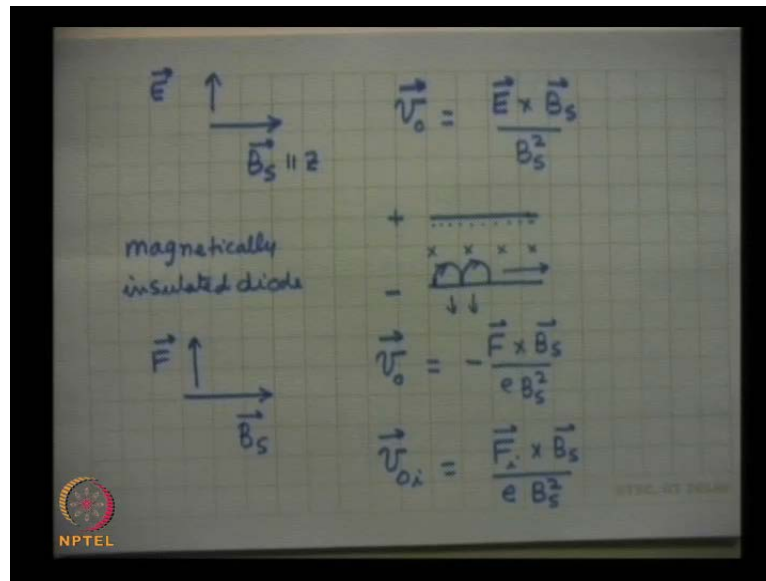 E⃗
B⃗ₛ ∥ z
v⃗₀ = E⃗ × B⃗ₛ / Bₛ²
+
x x x x
magnetically
insulated diode
-
F⃗
B⃗ₛ
v⃗₀ = - F⃗ × B⃗ₛ / e Bₛ²
v⃗₀ᵢ = F⃗ᵢ × B⃗ₛ / e Bₛ²
NPTEL